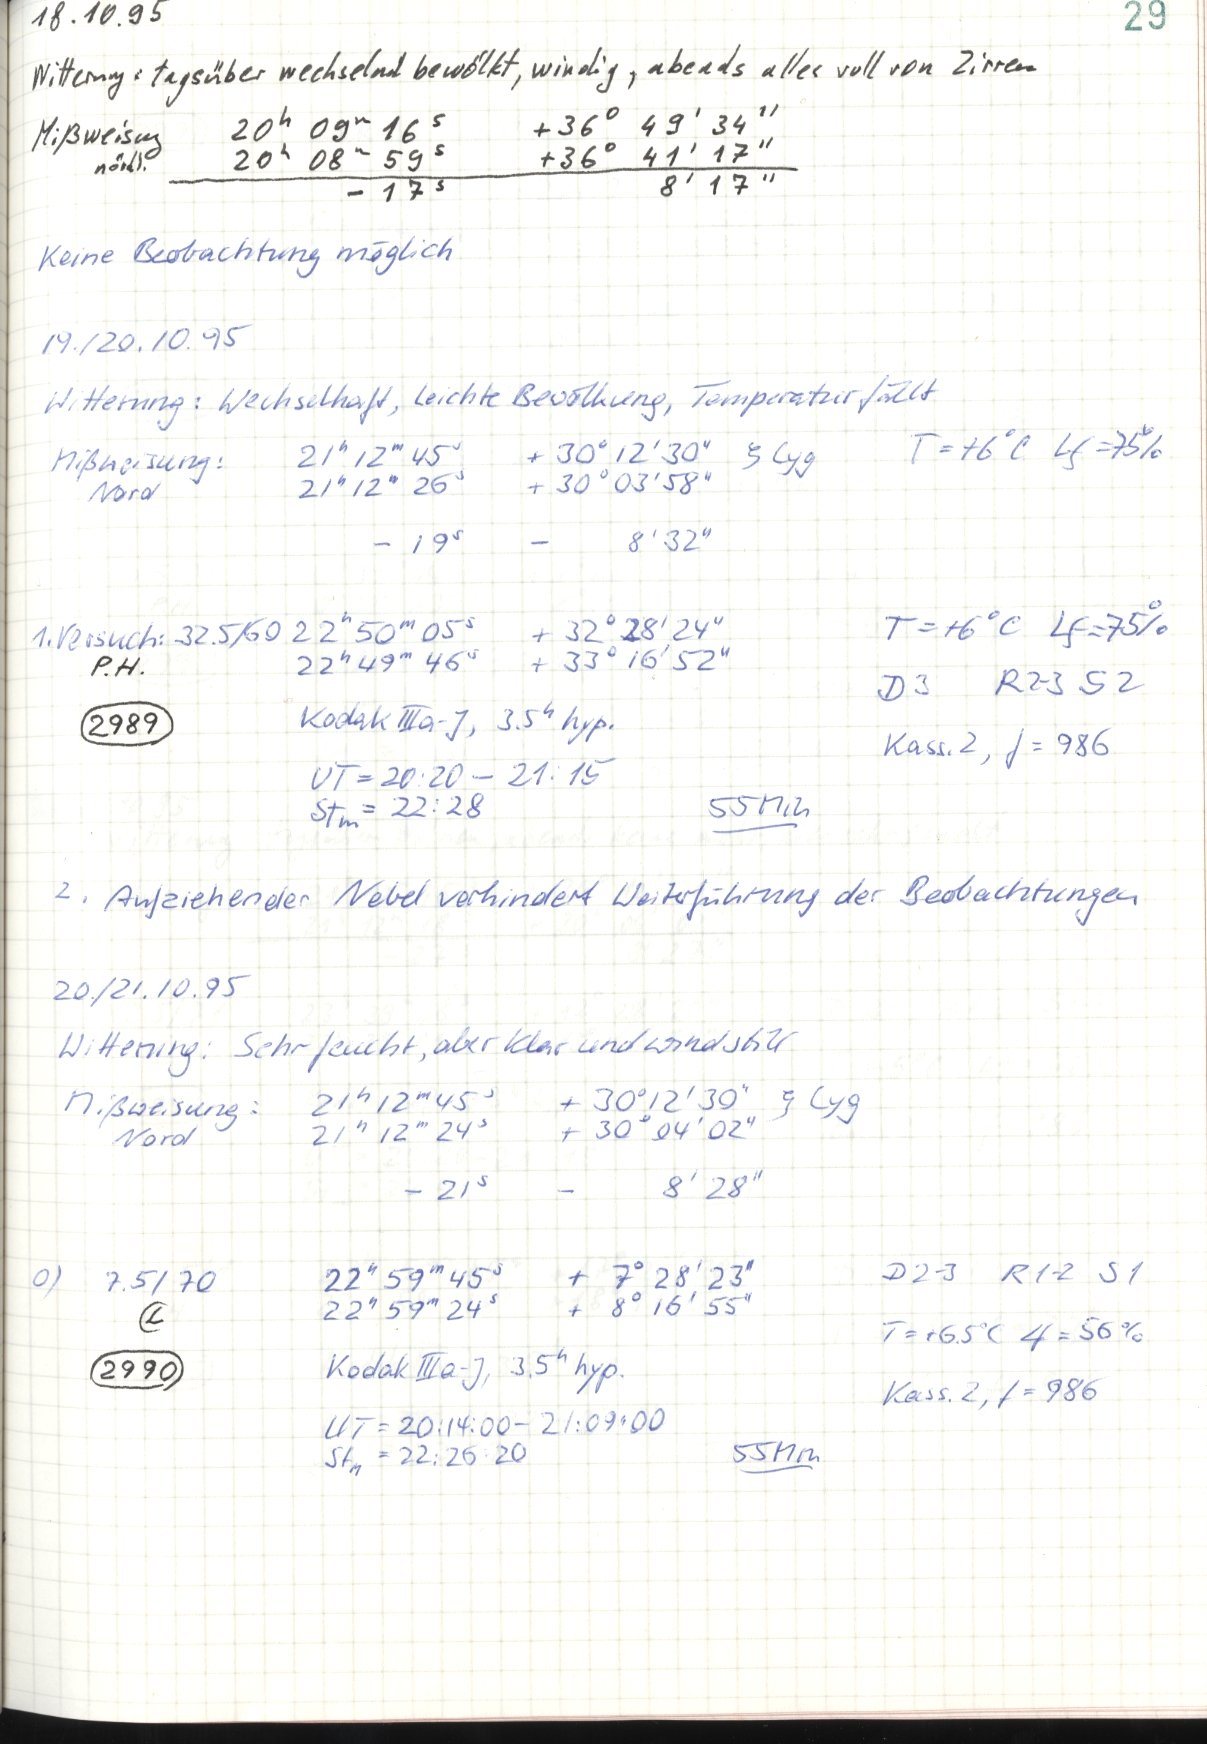 29
18.10.95
Witterung: tagsüber wechselnd bewölkt, windig, abends alles voll von Zirren
Mißweisung 20h 09m 16s +36° 49' 34"
nördl. 20h 08m 59s +36° 41' 17"
- 17s 8' 17"
Keine Beobachtung möglich
19./20.10.95
Witterung: Wechselhaft, leichte Bewölkung, Temperatur fällt
Mißweisung: 21h 12m 45s + 30° 12' 30" ζ Cyg T = +6°C Lf = 75%
Nord 21h 12m 26s + 30° 03' 58"
- 19s - 8' 32"
1. Versuch: 32.5/60 22h 50m 05s + 32° 28' 24" T = +6°C Lf = 75%
P.H. 22h 49m 46s + 33° 16' 52"
D3 R2-3 S2
2989 Kodak IIIa-J, 3.5h hyp. Kass. 2, f = 986
UT = 20:20 - 21:15
Stm = 22:28 55 Min
2. Aufziehender Nebel verhindert Weiterführung der Beobachtungen
20./21.10.95
Witterung: Sehr feucht, aber klar und windstill
Mißweisung: 21h 12m 45s + 30° 12' 30" ζ Cyg
Nord 21h 12m 24s + 30° 04' 02"
- 21s - 8' 28"
0) 7.5/70 22h 59m 45s + 7° 28' 23" D2-3 R1-2 S1
22h 59m 24s + 8° 16' 55"
T = +6.5°C Lf = 56%
2990 Kodak IIIa-J, 3.5h hyp. Kass. 2, f = 986
UT = 20:14:00 - 21:09:00
Stm = 22:26:20 55 Min